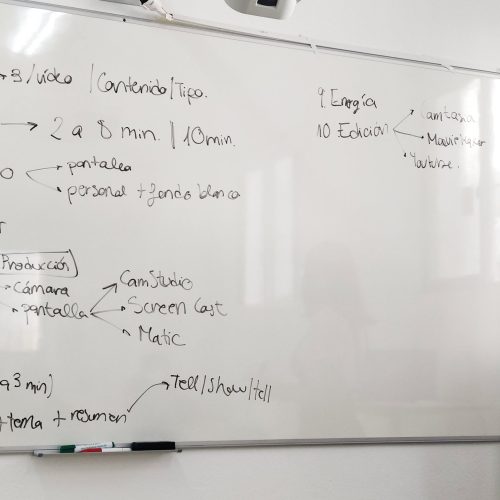 → 3/vídeo /Contenido/Tipo.
→ 2 a 8 min. / 10min.
pantalla
personal + fondo blanco
Producción
Cámara
pantalla
CamStudio
Screen Cast
Matic
3 min)
+tema + resumen → Tell/Show/tell
9. Energía
10. Edición
Camtasia
Youtube.